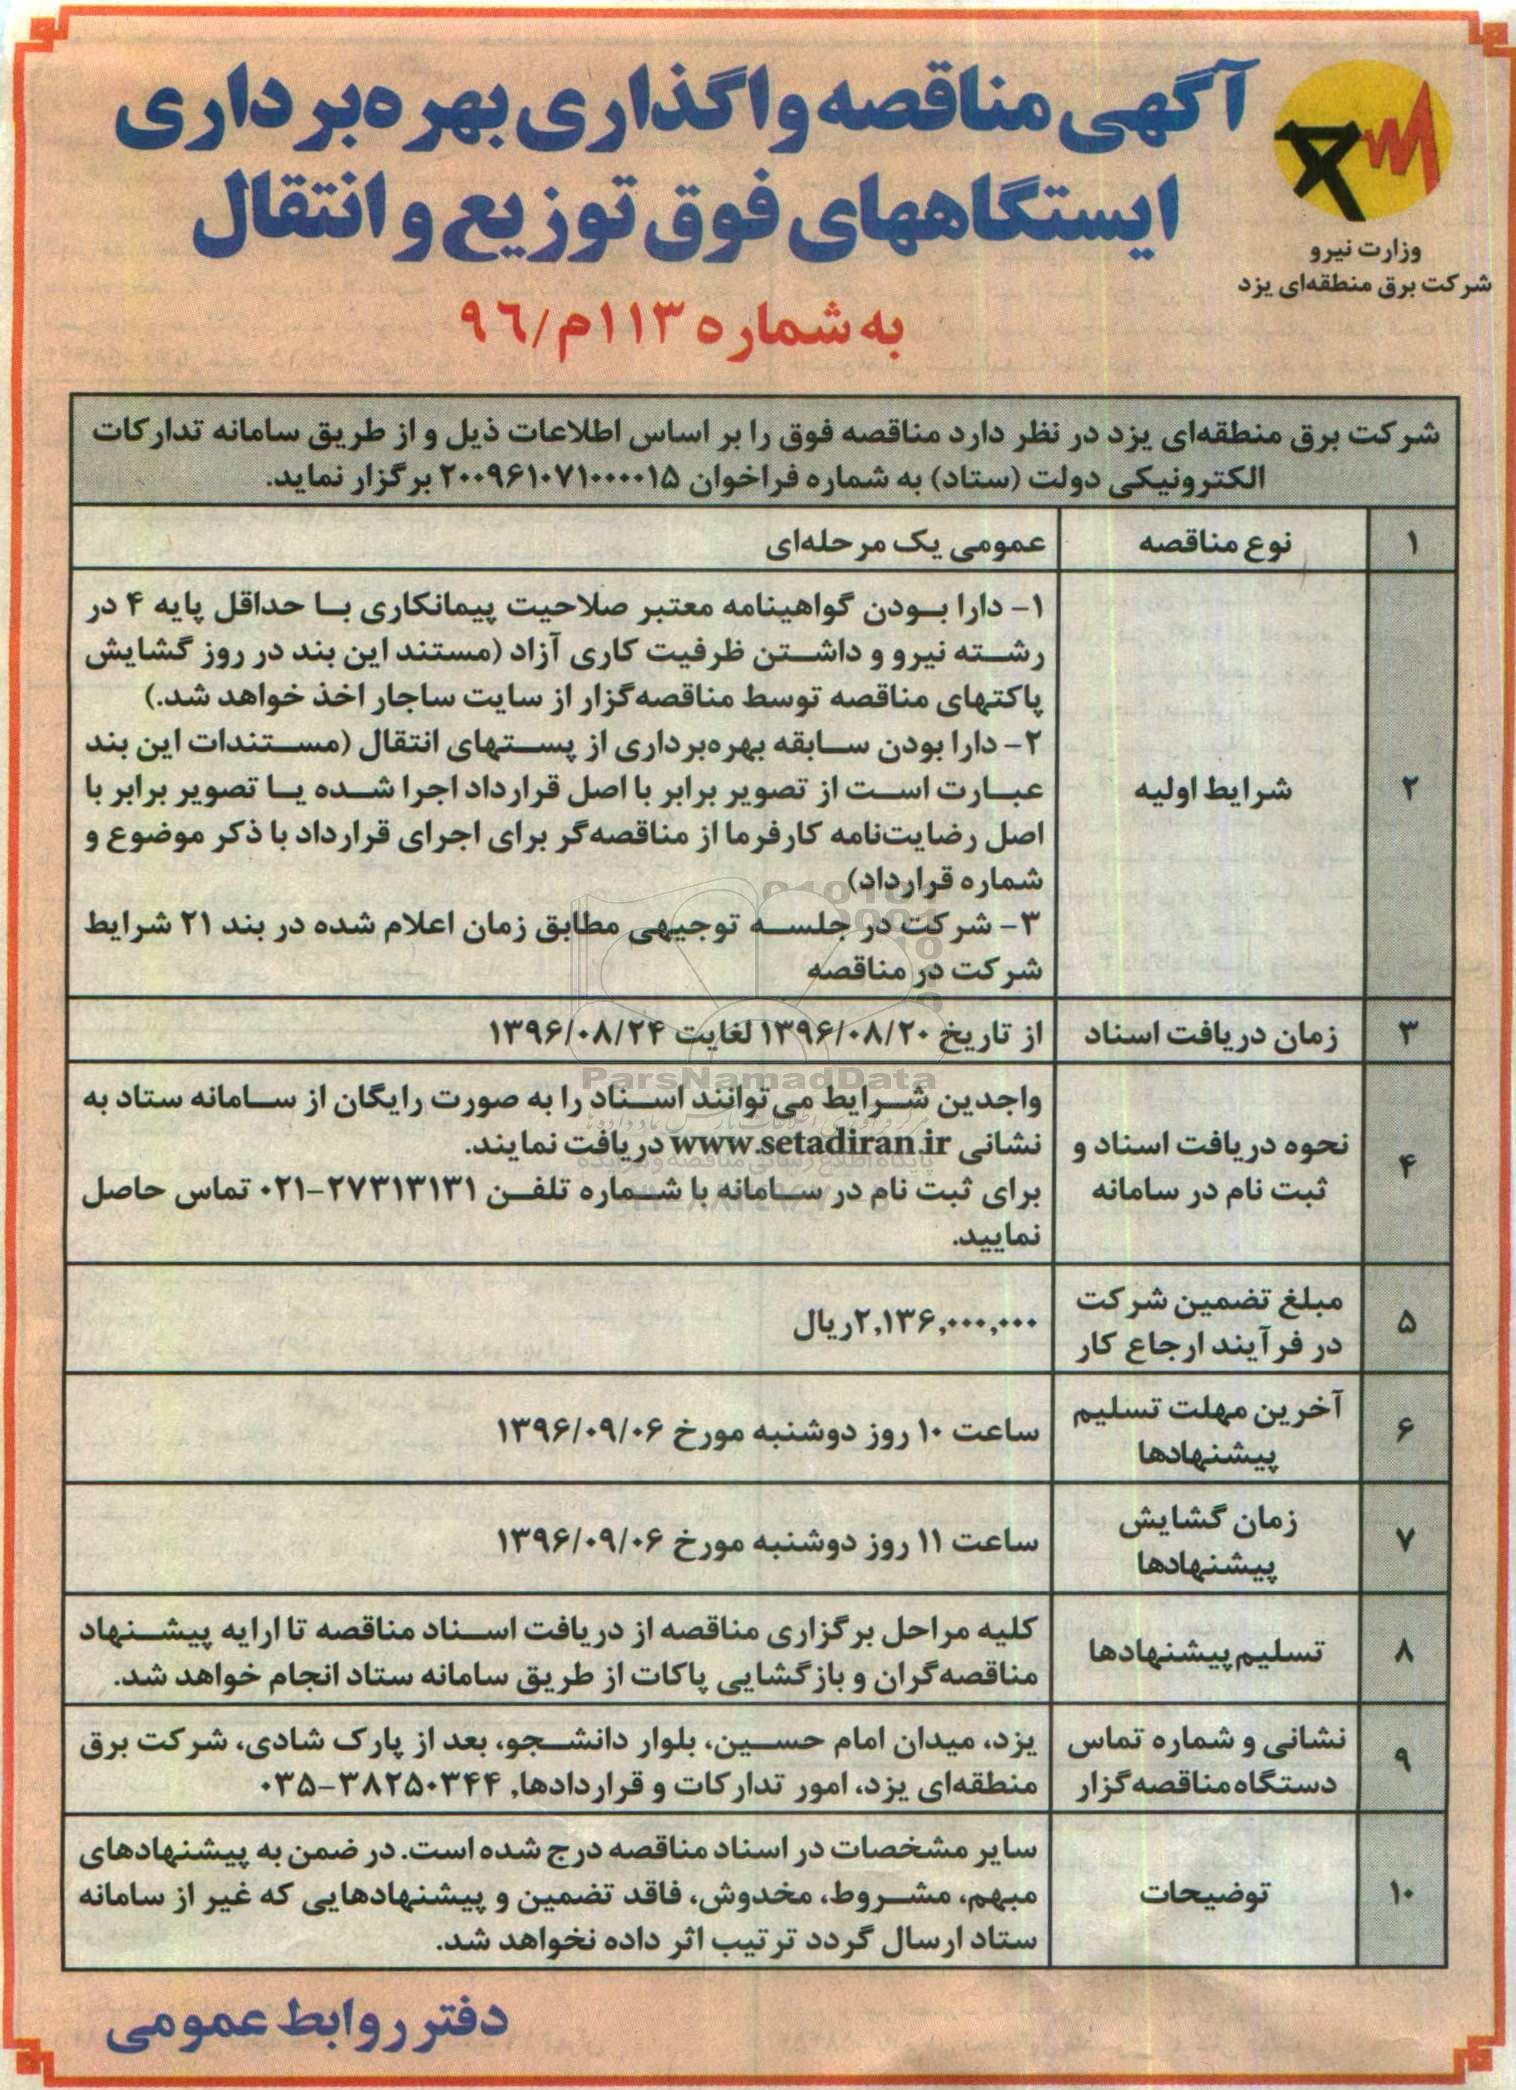 آگهی مناقصه واگذاری بهره‌برداری
ایستگاههای فوق توزیع و انتقال
وزارت نیرو
شرکت برق منطقه‌ای یزد
به شماره ۱۱۳م/۹۶
شرکت برق منطقه‌ای یزد در نظر دارد مناقصه فوق را بر اساس اطلاعات ذیل و از طریق سامانه تدارکات
الکترونیکی دولت (ستاد) به شماره فراخوان ۲۰۰۹۶۱۰۷۱۰۰۰۰۱۵ برگزار نماید.
۱
نوع مناقصه
عمومی یک مرحله‌ای
۲
شرایط اولیه
۱- دارا بودن گواهینامه معتبر صلاحیت پیمانکاری با حداقل پایه ۴ در
رشته نیرو و داشتن ظرفیت کاری آزاد (مستند این بند در روز گشایش
پاکتهای مناقصه توسط مناقصه‌گزار از سایت ساجار اخذ خواهد شد.)
۲- دارا بودن سابقه بهره‌برداری از پستهای انتقال (مستندات این بند
عبارت است از تصویر برابر با اصل قرارداد اجرا شده یا تصویر برابر با
اصل رضایت‌نامه کارفرما از مناقصه‌گر برای اجرای قرارداد با ذکر موضوع و
شماره قرارداد)
۳- شرکت در جلسه توجیهی مطابق زمان اعلام شده در بند ۲۱ شرایط
شرکت در مناقصه
۳
زمان دریافت اسناد
از تاریخ ۱۳۹۶/۰۸/۲۰ لغایت ۱۳۹۶/۰۸/۲۴
ParsNamadData
۴
نحوه دریافت اسناد و
ثبت نام در سامانه
واجدین شرایط می‌توانند اسناد را به صورت رایگان از سامانه ستاد به
نشانی www.setadiran.ir دریافت نمایند.
برای ثبت نام در سامانه با شماره تلفن ۲۷۳۱۳۱۳۱-۰۲۱ تماس حاصل
نمایید.
۵
مبلغ تضمین شرکت
در فرآیند ارجاع کار
۲,۱۳۶,۰۰۰,۰۰۰ریال
۶
آخرین مهلت تسلیم
پیشنهادها
ساعت ۱۰ روز دوشنبه مورخ ۱۳۹۶/۰۹/۰۶
۷
زمان گشایش
پیشنهادها
ساعت ۱۱ روز دوشنبه مورخ ۱۳۹۶/۰۹/۰۶
۸
تسلیم پیشنهادها
کلیه مراحل برگزاری مناقصه از دریافت اسناد مناقصه تا ارایه پیشنهاد
مناقصه‌گران و بازگشایی پاکات از طریق سامانه ستاد انجام خواهد شد.
۹
نشانی و شماره تماس
دستگاه مناقصه‌گزار
یزد، میدان امام حسین، بلوار دانشجو، بعد از پارک شادی، شرکت برق
منطقه‌ای یزد، امور تدارکات و قراردادها, ۳۸۲۵۰۳۴۴-۰۳۵
۱۰
توضیحات
سایر مشخصات در اسناد مناقصه درج شده است. در ضمن به پیشنهادهای
مبهم، مشروط، مخدوش، فاقد تضمین و پیشنهادهایی که غیر از سامانه
ستاد ارسال گردد ترتیب اثر داده نخواهد شد.
دفتر روابط عمومی